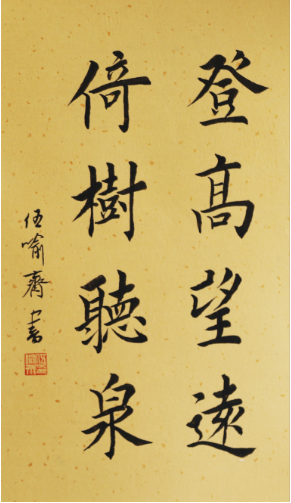 登高望遠
倚樹聽泉
伍喻齋書